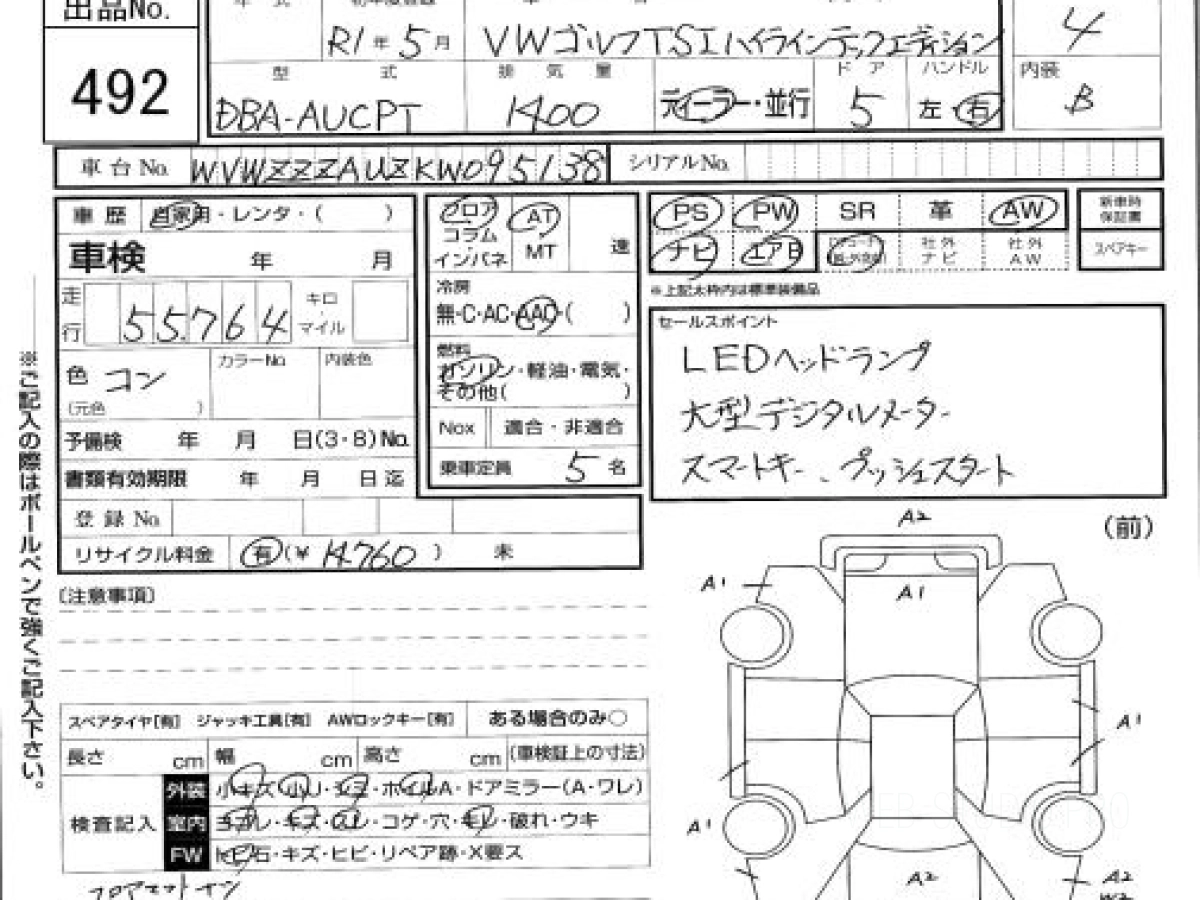 出品No.
492
年 式
R1年5月
VWゴルフTSIハイラインテックエディション
4
型 式
DBA-AUCPT
排 気 量
1400
ディーラー・並行
ドア
5
ハンドル
左・右
内装
B
車台No.
WVWZZZAUZKW095138
シリアルNo.
車歴
自家用・レンタ・( )
車検
年 月
走行
55,764
キロ
マイル
色
コン
(元色 )
カラーNo
内装色
予備検 年 月 日(3・8)No.
書類有効期限 年 月 日迄
登録No.
リサイクル料金
有(¥14,760) 未
フロア
コラム
インパネ
AT
MT
速
冷房
無・C・AC・AAC・( )
燃料
ガソリン・軽油・電気・
その他( )
Nox
適合・非適合
乗車定員
5名
PS
PW
SR
革
AW
ナビ
エアB
社外
ナビ
社外
AW
新車時
保証書
スペアキー
※上記太枠内は標準装備品
セールスポイント
LEDヘッドランプ
大型デジタルメーター
スマートキー、プッシュスタート
(注意事項)
※ご記入の際はボールペンで強くご記入下さい。
スペアタイヤ[有] ジャッキ工具[有] AWロックキー[有]
ある場合のみ○
長さ cm
幅 cm
高さ cm
(車検証上の寸法)
検査記入
外装
小キズ・小U・シミ・ホイルA・ドアミラー(A・ワレ)
室内
ヨゴレ・キズ・スレ・コゲ・穴・モレ・破れ・ウキ
FW
トビ石・キズ・ヒビ・リペア跡・X要ス
フロアマットナシ
(前)
A2
A1
A1
A1
A1
A2
A2
W2